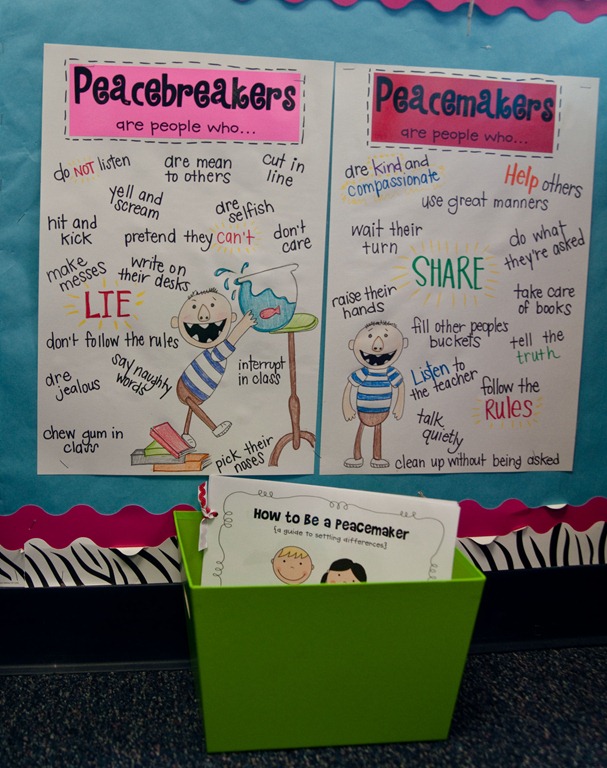 Peacebreakers
are people who...
do NOT listen
are mean
to others
cut in
line
yell and
scream
are
selfish
hit and
kick
pretend they can't
don't
care
make
messes
write on
their desks
LIE
don't follow the rules
are
jealous
say naughty
words
interrupt
in class
chew gum in
class
pick their
noses
Peacemakers
are people who...
are kind and
compassionate
Help others
use great manners
wait their
turn
do what
they're asked
SHARE
raise their
hands
take care
of books
fill other people's
buckets
tell the
truth
Listen to
the teacher
follow the
RULES
talk
quietly
clean up without being asked
How to Be a Peacemaker
{a guide to settling differences}